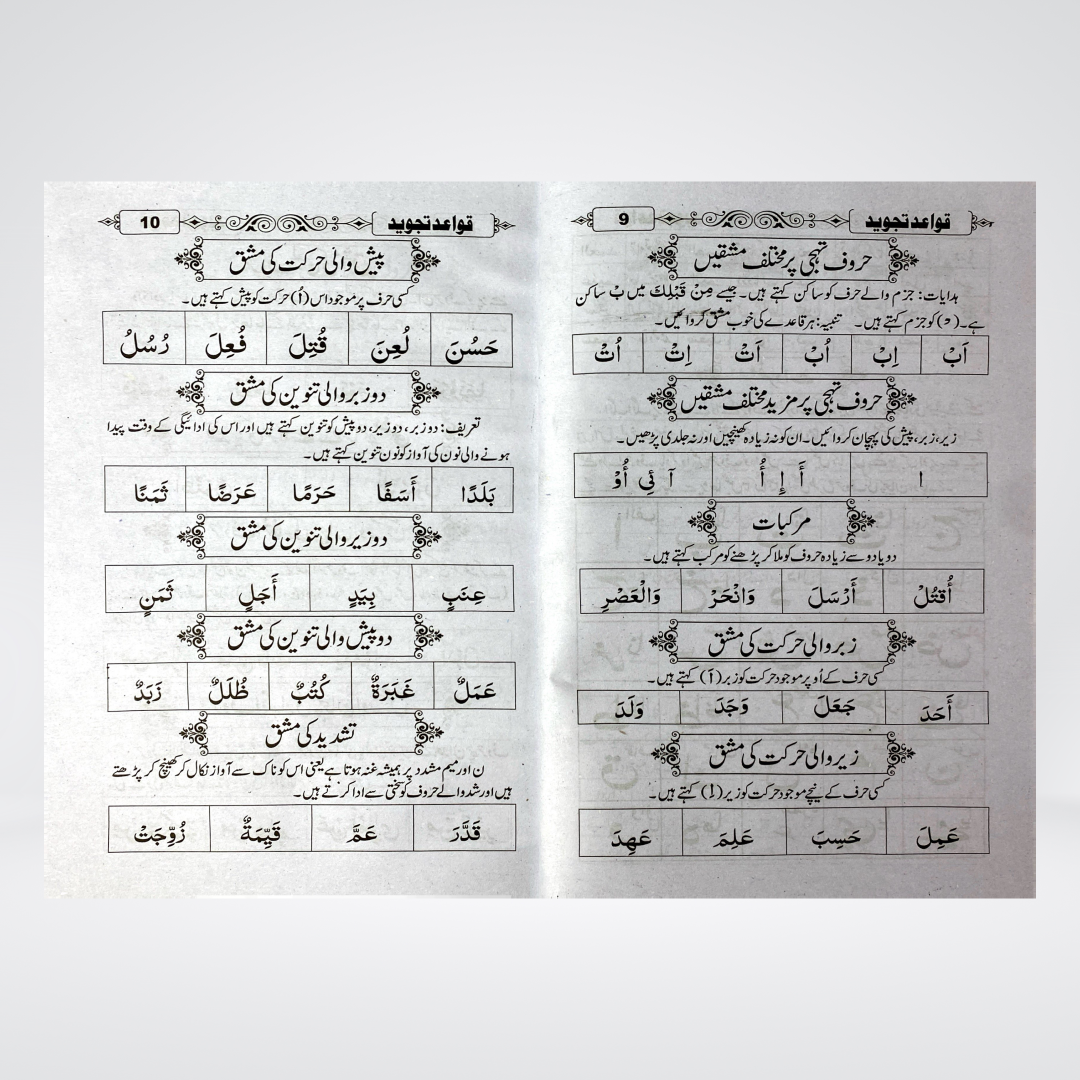 قواعد تجوید
9
حروف تہجی پر مختلف مشقیں
ہدایات: جزم والے حرف کو ساکن کہتے ہیں۔ جیسے مِنْ قَبْلِكَ میں بْ ساکن
ہے۔ (ْ) کو جزم کہتے ہیں۔ تنبیہ: ہر قاعدے کی خوب مشق کروائیں۔
اَبْ اِبْ اُبْ اَتْ اِتْ اُتْ
حروف تہجی پر مزید مختلف مشقیں
زیر، زبر، پیش کی پہچان کروائیں۔ ان کو نہ زیادہ کھینچیں اور نہ جلدی پڑھیں۔
ا أَ إِ أُ آ ئِي أُوْ
مرکبات
دو یا دو سے زیادہ حروف کو ملا کر پڑھنے کو مرکب کہتے ہیں۔
أُقْتُلْ أَرْسَلَ وَانْحَرْ وَالْعَصْرِ
زبر والی حرکت کی مشق
کسی حرف کے اُوپر موجود حرکت کو زبر (اَ) کہتے ہیں۔
أَحَدَ جَعَلَ وَجَدَ وَلَدَ
زیر والی حرکت کی مشق
کسی حرف کے نیچے موجود حرکت کو زیر (اِ) کہتے ہیں۔
عَمِلَ حَسِبَ عَلِمَ عَهِدَ
قواعد تجوید
10
پیش والی حرکت کی مشق
کسی حرف پر موجود اس (اُ) حرکت کو پیش کہتے ہیں۔
حَسُنَ لُعِنَ قُتِلَ فُعِلَ رُسُلُ
دو زبر والی تنوین کی مشق
تعریف: دو زبر، دو زیر، دو پیش کو تنوین کہتے ہیں اور اس کی ادائیگی کے وقت پیدا
ہونے والی نون کی آواز کو نون تنوین کہتے ہیں۔
بَلَدًا أَسَفًا حَرَمًا عَرَضًا ثَمَنًا
دو زیر والی تنوین کی مشق
عِنَبٍ بِيَدٍ أَجَلٍ ثَمَنٍ
دو پیش والی تنوین کی مشق
عَمَلٌ غَبَرَةٌ كُتُبٌ ظُلَلٌ زَبَدٌ
تشدید کی مشق
ن اور میم مشدد پر ہمیشہ غنہ ہوتا ہے یعنی اس کو ناک سے آواز نکال کر کھینچ کر پڑھتے
ہیں اور شد والے حروف کو سختی سے ادا کرتے ہیں۔
قَدَّرَ عَمَّ قَيِّمَةٌ زُوِّجَتْ